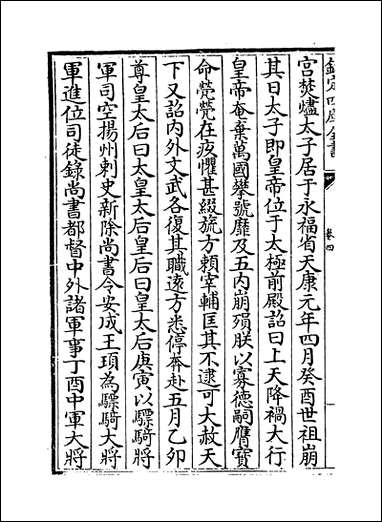 欽定四庫全書
卷四
宮焚燼太子居于永福省天康元年四月癸酉世祖崩
其日太子即皇帝位于太極前殿詔曰上天降禍大行
皇帝奄棄萬國攀號靡及五内崩殞朕以寡德嗣膺寶
命煢煢在疚懼甚綴旒方頼宰輔匡其不逮可大赦天
下又詔内外文武各復其職逺方悉停奔赴五月乙卯
尊皇太后曰太皇太后皇后曰皇太后庚寅以驃騎將
軍司空揚州刺史新除尚書令安成王頊為驃騎大將
軍進位司徒錄尚書都督中外諸軍事丁酉中軍大將